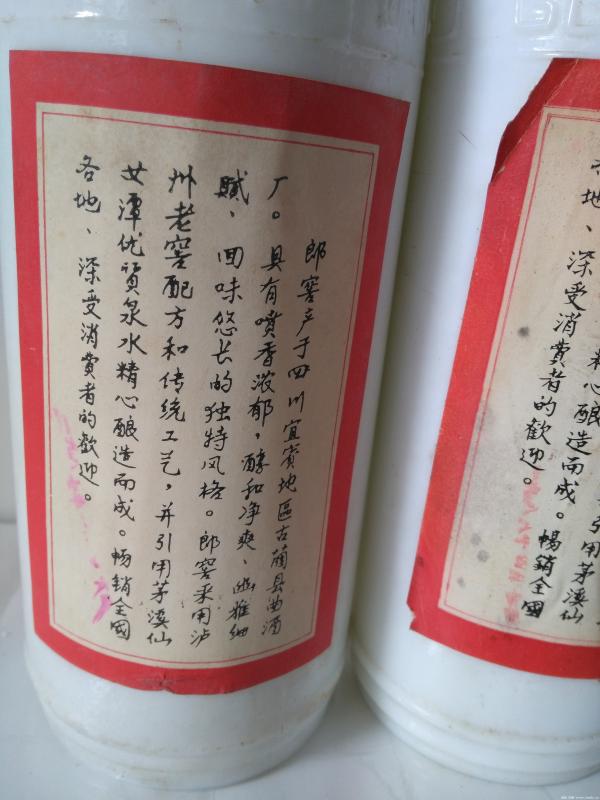 郎窖产于四川宜賓地區古藺县曲酒
厂。具有噴香浓郁，醇和净爽、幽雅细
賦、回味悠长的独特风格。郎窖采用泸
州老窖配方和传统工艺，并引用茅溪仙
女潭优質泉水精心酿造而成。畅销全國
各地、深受消費者的歡迎。
引用茅溪仙
精心酿造而成。暢銷全國
地、深受消費者的歡迎。